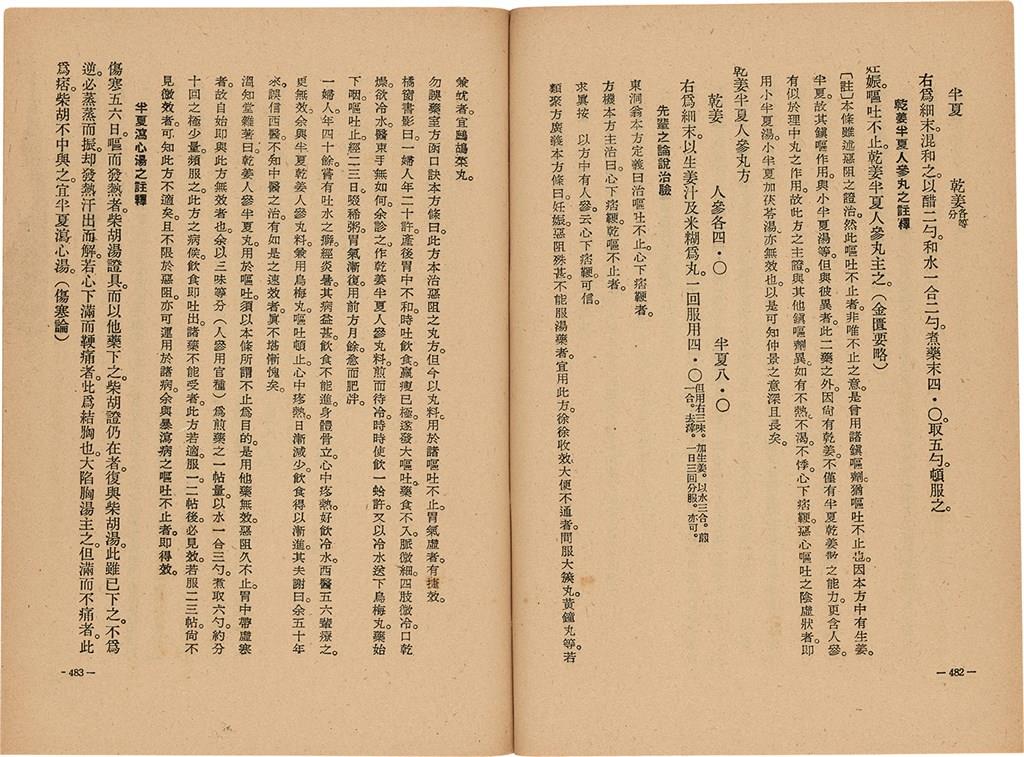 半夏　乾姜各等分
右爲細末混和之。以醋二勺和水一合二勺。煮藥末四・〇。取五勺。頓服之。
乾姜半夏人參丸之註釋
妊娠。嘔吐不止。乾姜半夏人參丸主之。（金匱要略）
〔註〕本條雖述惡阻之證治。然此嘔吐不止者。非唯不止之意。是曾用諸鎭嘔劑。猶嘔吐不止也。因本方中有生姜。
半夏。故其鎭嘔作用與小半夏湯等。但與彼異者。此二藥之外。因尙有乾姜。不僅有半夏乾姜散之能力。更含人參。
有似於理中丸之作用。故此方之主證與其他鎭嘔劑異。如有不熱。不渴。不悸。心下痞鞕。惡心嘔吐之陰虛狀者。卽
用小半夏湯。小半夏加茯苓湯。亦無效也。以是可知仲景之意深且長矣。
乾姜半夏人參丸方
乾姜　人參各四・〇　半夏八・〇
右爲細末。以生姜汁及米糊爲丸。一回服用四・〇。但用右三味。加生姜。以水三合。煎一合。去滓。一日三回分服。亦可。
先輩之論說治驗
東洞翁本方定義曰。治嘔吐不止。心下痞鞕者。
方機本方主治曰。心下痞鞕。乾嘔不止者。
求眞按　以方中有人參。云心下痞鞕可信。
類聚方廣義本方條曰。妊娠惡阻殊甚。不能服湯藥者。宜用此方。徐徐收效。大便不通者。間服大簇丸。黃鐘丸等。若
兼蚘者。宜鷓鴣菜丸。
勿誤藥室方函口訣本條曰。此方本治惡阻之丸方。但今以丸料。用於諸嘔吐不止。胃氣虛者。有捷效。
橘窗書影曰。一婦人年二十許。產後胃中不和。時吐飲食。羸瘦已極。遂發大嘔吐。藥食不入。脈微細。四肢微冷。口乾
燥。欲冷水。醫束手無如何。余診之。作乾姜半夏人參丸料。煎而待冷。時時使飲一蛤許。又以冷水送下烏梅丸。藥始
下咽。嘔吐止。經二三日。啜稀粥。胃氣漸復。用前方月餘。愈而肥胖。
一婦人年四十餘。嘗有吐水之癖。經炎暑。其病益甚。飲食不能進。身體骨立。心中疼熱。好飲冷水。西醫五六輩療之。
更無效。余與半夏乾姜人參丸料。兼用烏梅丸。嘔吐頓止。心中疼熱日漸減少。飲食得以漸進。其夫謝曰。余五十年
來誤信西醫。不知中醫之治有如是之速效者。眞不堪慚愧矣。
溫知堂雜著曰。乾姜人參半夏丸用於嘔吐。須以本條所謂不止爲目的。是用他藥無效。惡阻久不止。胃中帶虛寒
者。故自始卽與此方。無效者也。余以三味等分（人參用官種）爲煎藥之一帖量。以水一合三勺。煮取六勺。約分
十回之極少量頻服之。此方之病候。飲食卽吐出。諸藥不能受者。此方若適。服一二帖後必見效。若服二三帖。尙不
見微效者。可知此方不適矣。且不限於惡阻。亦可運用於諸病。余與暴瀉病之嘔吐不止者。卽得效。
半夏瀉心湯之註釋
傷寒五六日。嘔而發熱者。柴胡湯證具。而以他藥下之。柴胡證仍在者。復與柴胡湯。此雖已下之。不爲
逆。必蒸蒸而振。却發熱汗出而解。若心下滿而鞕痛者。此爲結胸也。大陷胸湯主之。但滿而不痛者。此
爲痞。柴胡不中與之。宜半夏瀉心湯。（傷寒論）
— 482 —
— 483 —